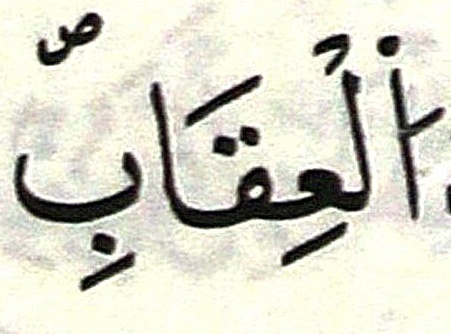 ٱلْعِقَابِۖ